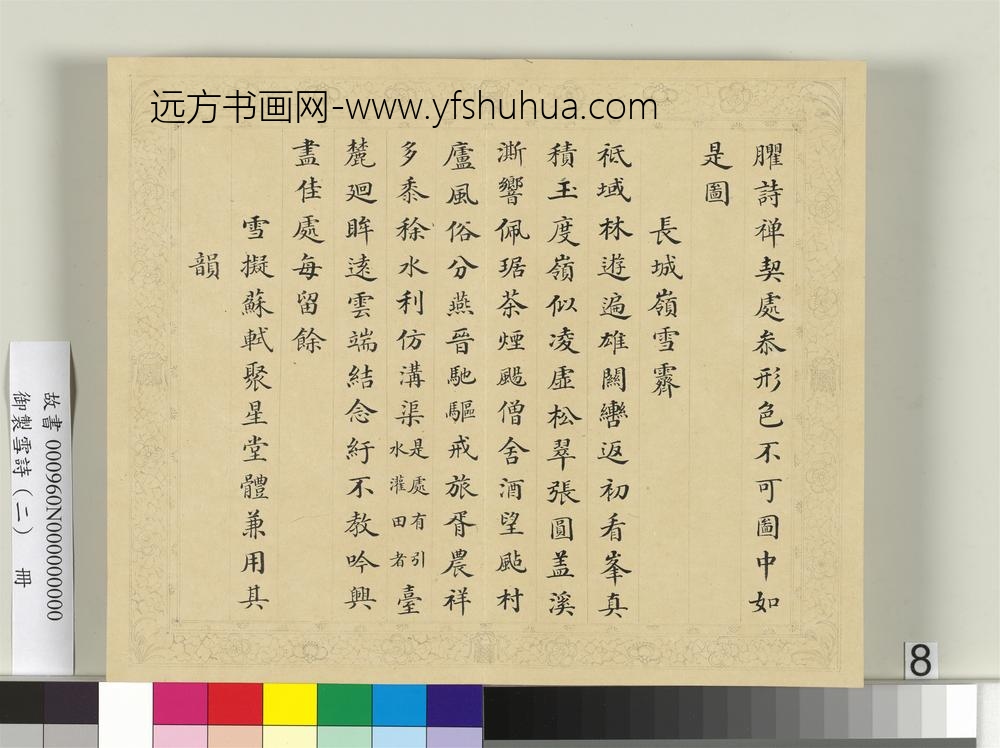 远方书画网-www.yfshuhua.com
臞詩禅契處叅形色不可圖中如
是圖
長城嶺雪霽
祗域林遊遍雄關轡返初看峯真
積玉度嶺似凌虛松翠張圓盖溪
澌響佩琚茶煙颺僧舍酒望颭村
廬風俗分燕晉馳驅戒旅胥農祥
多黍稌水利仿溝渠是處有引水灌田者臺
麓廻眸遠雲端結念紆不教吟興
盡佳處每留餘
雪擬蘇軾聚星堂體兼用其
韻
故書 000960N000000000
御製雪詩(二) 冊
8